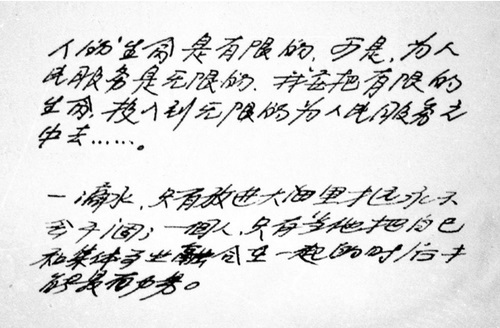 人的生命是有限的,可是,为人
民服务是无限的,我要把有限的
生命,投入到无限的为人民服务之
中去……。
一滴水,只有放进大海里才能永不
会干涸;一個人,只有当他把自己
和集体事业融合在一起的时后才
能最有力量。